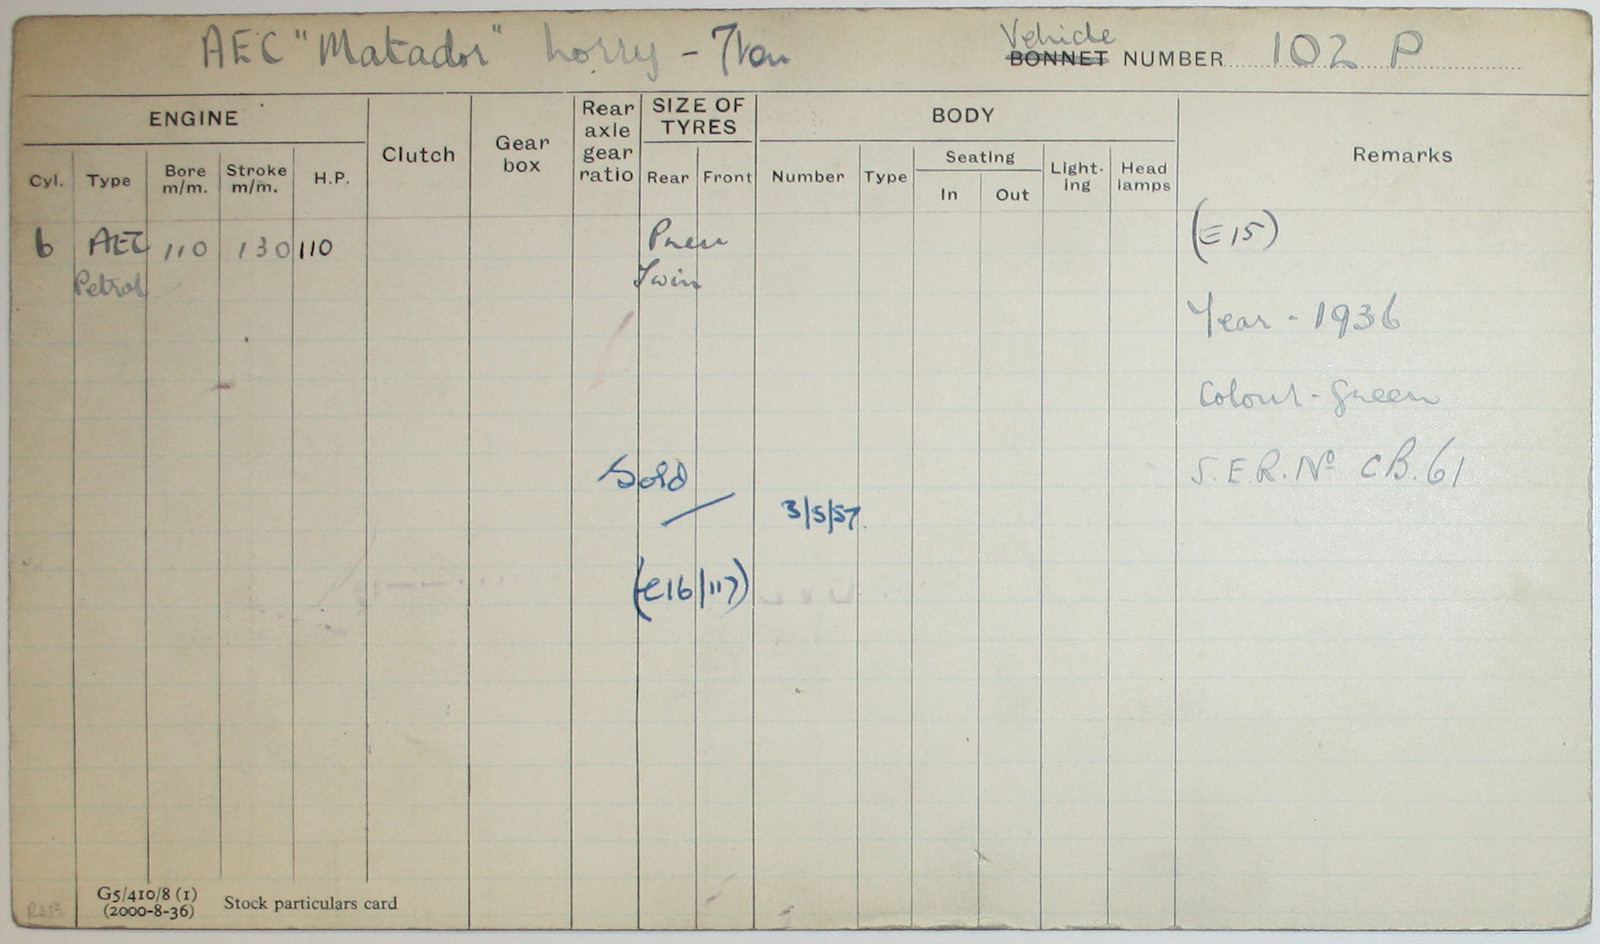 AEC "Matador" Lorry - 7 Ton
Vehicle
BONNET NUMBER 102 P
ENGINE
Clutch
Gear box
Rear axle gear ratio
SIZE OF TYRES
BODY
Remarks
Cyl. Type Bore m/m. Stroke m/m. H.P.
Rear Front
Number Type Seating Light-ing Head lamps
In Out
6 AEC 110 130 110 Pneu (E15)
Petrol Twin
Year - 1936
Colour - Green
Sold S.E.R. No CB.61
3/5/57.
(E16/117)
G5/410/8 (1)
(2000-8-36) Stock particulars card